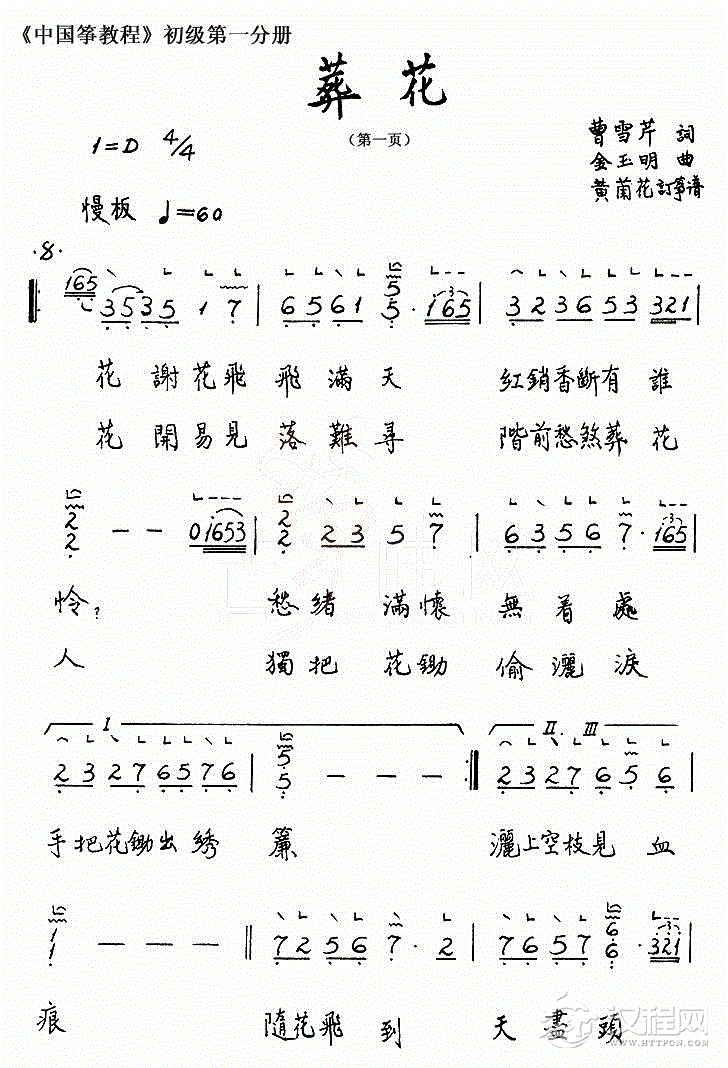 《中国筝教程》初级第一分册
葬花
(第一页)
1=D 4/4
曹雪芹 詞
金玉明 曲
黄蘭花訂筝谱
慢板 ♩=60
·8·
165 3535 1 7 | 6561 5 5· 165 | 3236 53 321
花謝花飛飛滿天 紅銷香斷有誰
花開易見落難尋 階前愁煞葬花
2 2 — — 01653 | 2 2 23 5 7 | 6356 7· 165
怜? 愁緒滿懷無着處
人 獨把花鋤偷灑淚
I II. III
23276576 | 5 5 — — — :‖ 2327 6 5 6
手把花鋤出綉簾 灑上空枝見血
1 1 — — — ‖ 7256 7· 2 | 7657 6 6· 321
痕 隨花飛到天盡頭
汉程网
HTTPCN.COM